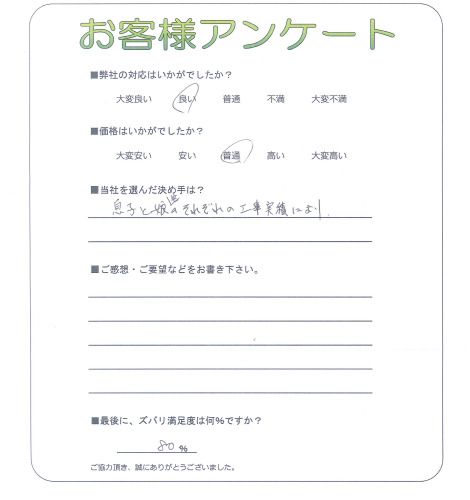 お客様アンケート
■弊社の対応はいかがでしたか？
大変良い 良い 普通 不満 大変不満
■価格はいかがでしたか？
大変安い 安い 普通 高い 大変高い
■当社を選んだ決め手は？
息子と娘のそれぞれの工事実績により
■ご感想・ご要望などをお書き下さい。
■最後に、ズバリ満足度は何%ですか？
80 %
ご協力頂き、誠にありがとうございました。